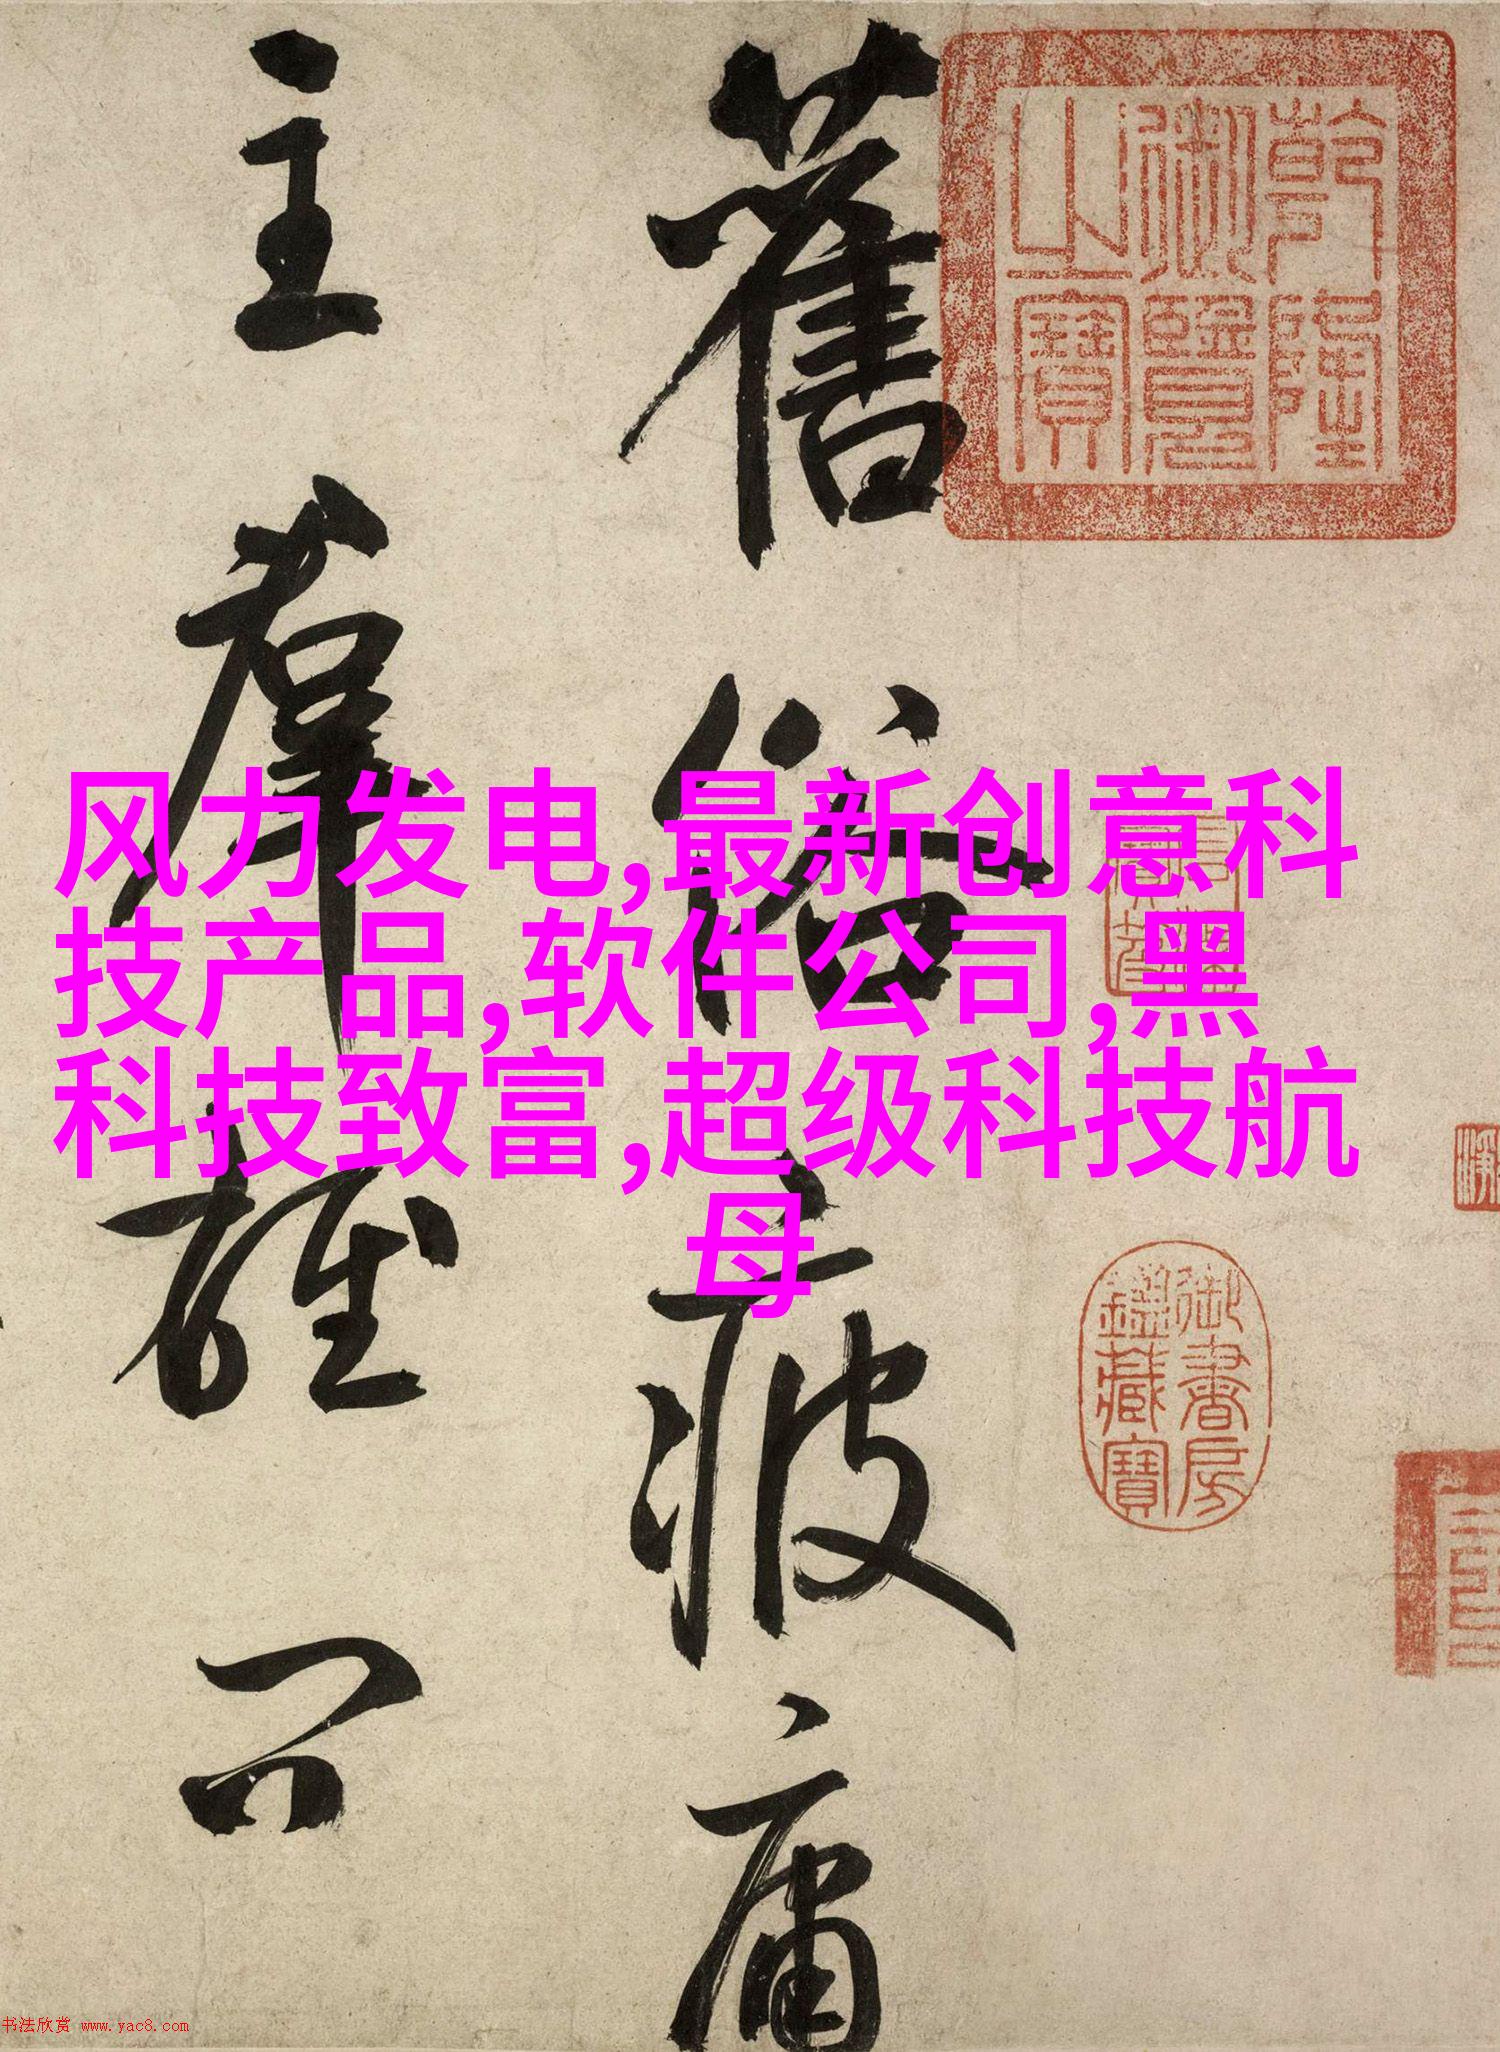 风力发电,最新创意科
技产品,软件公司,黑
科技致富,超级科技航
母
舊俗疲庸
主羣雄只
乾隆
御覽
之寶
御書房
鑑藏寶
书法欣赏 www.yac8.com